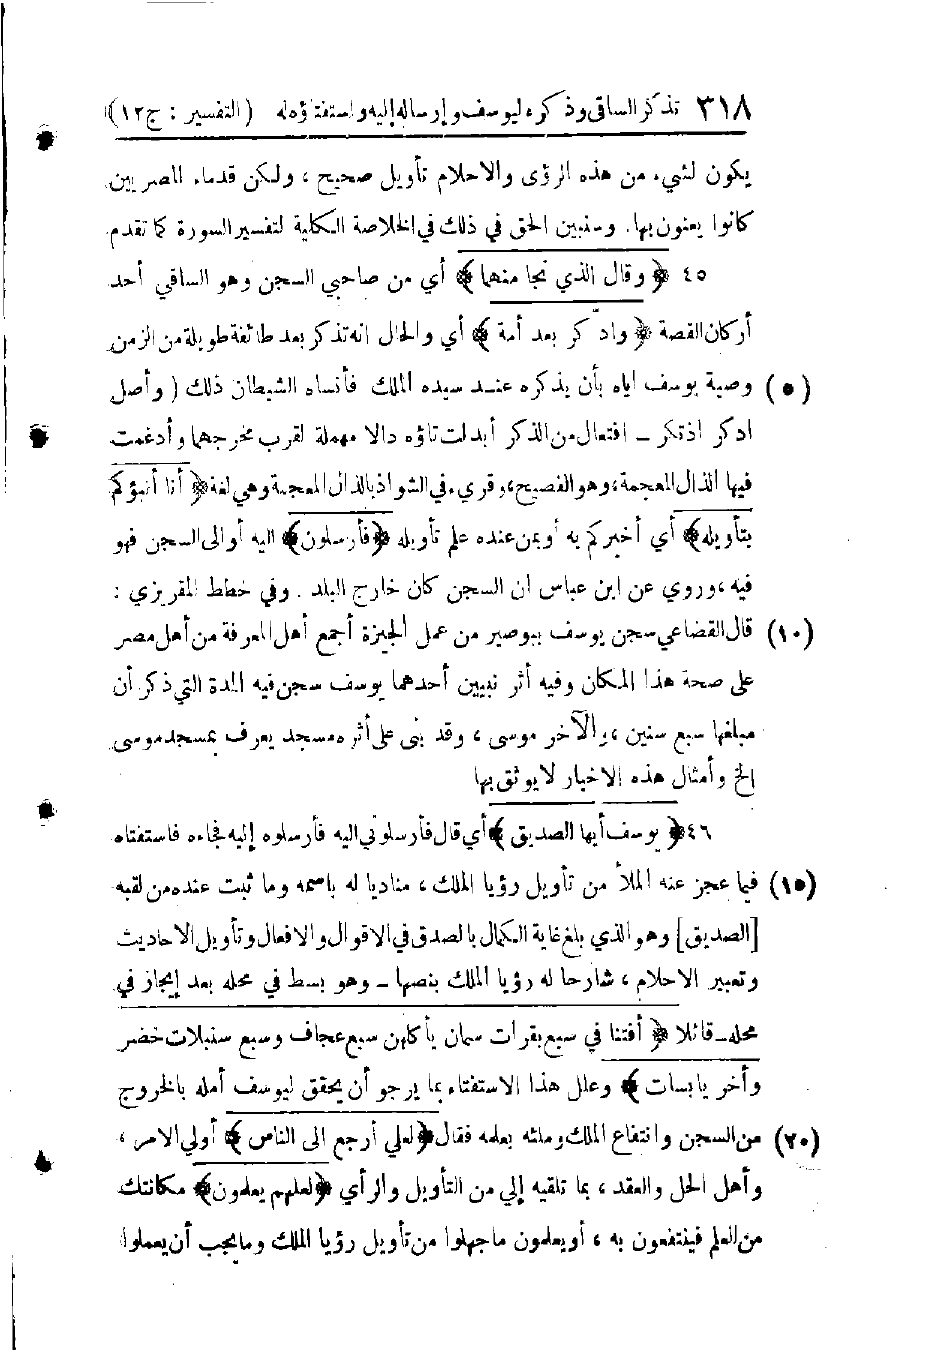 ٣١٨ تذكر الساقي وذكره ليوسف وإرساله إليه واستفتاؤه له (التفسير : ج١٢)
يكون لشيء من هذه الرؤى والاحلام تأويل صحيح ، ولكن قدماء المصريين
كانوا يعنون بها. وسنبين الحق في ذلك في الخلاصة الكلية لتفسير السورة كما تقدم
٤٥ ﴿ وقال الذي نجا منهما ﴾ أي من صاحبي السجن وهو الساقي أحد
أركان القصة ﴿ وادّكر بعد أمة ﴾ أي والحال انه تذكر بعد طائفة طويلة من الزمن
(٥) وصية يوسف اياه بأن يذكره عند سيده الملك فأنساه الشيطان ذلك ( وأصل
ادكر اذتكر ــ افتعال من الذكر أبدلت تاؤه دالا مهملة لقرب مخرجهما وأدغمت
فيها الذال المعجمة، وهو الفصيح، وقريء في الشواذ بالذال المعجمة وهي لغة ﴿ أنا أنبؤكم
بتأويله﴾ أي أخبركم به أو بمن عنده علم تأويله ﴿فأرسلون﴾ اليه أو الى السجن فهو
فيه ، وروي عن ابن عباس ان السجن كان خارج البلد . وفي خطط المقريزي :
(١٠) قال القضاعي سجن يوسف ببوصير من عمل الجيزة أجمع أهل المعرفة من أهل مصر
على صحة هذا المكان وفيه أثر نبيين أحدهما يوسف سجن فيه المدة التي ذكر أن
مبلغها سبع سنين ، والآخر موسى ، وقد بنى على أثره مسجد يعرف بمسجد موسى
الخ وأمثال هذه الاخبار لا يوثق بها
٤٦﴿ يوسف أيها الصديق ﴾أي قال فأرسلوني اليه فأرسلوه إليه فجاءه فاستفتاه
(١٥) فيما عجز عنه الملأ من تأويل رؤيا الملك ، مناديا له باسمه وما ثبت عنده من لقبه
[الصديق] وهو الذي بلغ غاية الكمال بالصدق في الاقوال والافعال وتأويل الاحاديث
وتعبير الاحلام ، شارحا له رؤيا الملك بنصها ــ وهو بسط في محله بعد إيجاز في
محله ــ قائلا ﴿ أفتنا في سبع بقرات سمان يأكلهن سبع عجاف وسبع سنبلات خضر
وأخر يابسات ﴾ وعلل هذا الاستفتاء بما يرجو أن يحقق ليوسف أمله بالخروج
(٢٠) من السجن وانتفاع الملك وملئه بعلمه فقال ﴿لعلي أرجع الى الناس ﴾ أولي الامر ،
وأهل الحل والعقد ، بما تلقيه إلي من التأويل والرأي ﴿لعلهم يعلمون﴾ مكانتك
من العلم فينتفعون به ، أو يعلمون ما جهلوا من تأويل رؤيا الملك وما يجب أن يعملوا